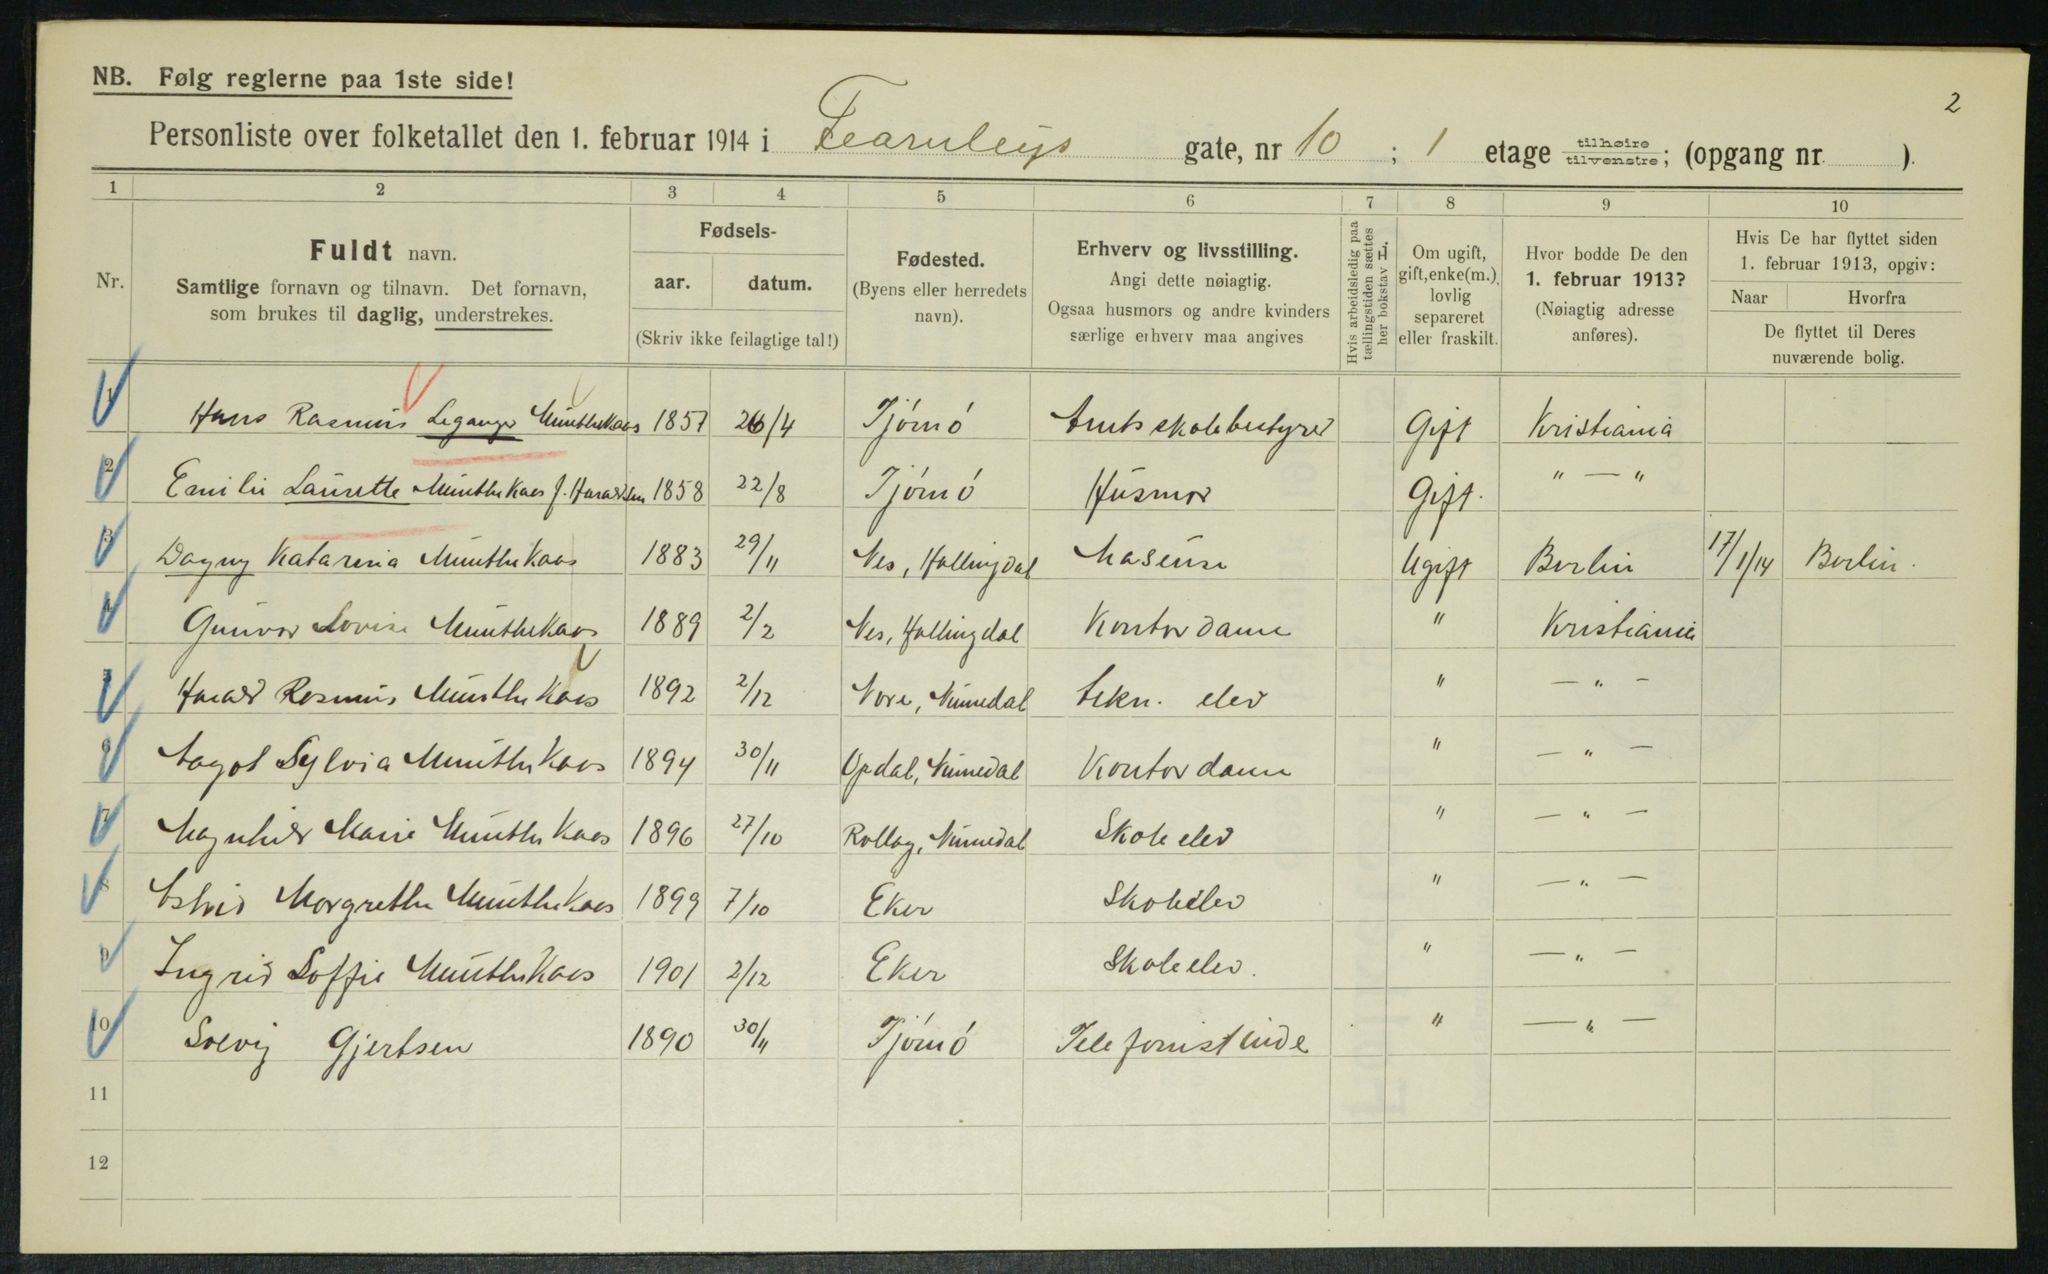 2
NB. Følg reglerne paa 1ste side!
Personliste over folketallet den 1. februar 1914 i Fearnleys gate, nr 10 ; 1 etage tilhøire tilvenstre; (opgang nr ).
1 2 3 4 5 6 7 8 9 10
Nr.
Fuldt navn.
Samtlige fornavn og tilnavn. Det fornavn,
som brukes til daglig, understrekes.
Fødsels-
aar. datum.
(Skriv ikke feilagtige tal!)
Fødested.
(Byens eller herredets
navn).
Erhverv og livsstilling.
Angi dette nøiagtig.
Ogsaa husmors og andre kvinders
særlige erhverv maa angives
Hvis arbeidsledig paa
tællingstiden sættes
her bokstav H.
Om ugift,
gift, enke(m.),
lovlig
separeret
eller fraskilt.
Hvor bodde De den
1. februar 1913?
(Nøiagtig adresse
anføres).
Hvis De har flyttet siden
1. februar 1913, opgiv:
Naar Hvorfra
De flyttet til Deres
nuværende bolig.
1 Hans Rasmus Leganger Munthe Kaas 1857 26/4 Tjómó Amtsskolebestyrer Gift Kristiania
2 Emilie Laurette Munthe Kaas f. Haraldsen 1858 22/8 Tjómó Husmor Gift. " — "
3 Dagny Katarina Munthe Kaas 1883 29/11 Nes, Hallingdal Maseuse Ugift Berlin 17/1/14 Berlin.
4 Gunvor Lovise Munthe Kaas 1889 2/2 Nes, Hallingdal Kontordame " Kristiania
5 Harald Rasmus Munthe Kaas 1892 2/12 Nore, Numedal tekn. elev " — " —
6 Aagot Sylvia Munthe Kaas 1894 30/11 Opdal, Numedal Kontordame " — " —
7 Magnhild Marie Munthe Kaas 1896 27/10 Rollag, Numedal Skoleelev " — " —
8 Astrid Margrethe Munthe Kaas 1899 7/10 Eker Skoleelev " — " —
9 Ingrid Soffie Munthe Kaas 1901 2/12 Eker Skoleelev. " — " —
10 Solvig Gjertsen 1890 30/11 Tjómó Telefonistinde " — " —
11
12